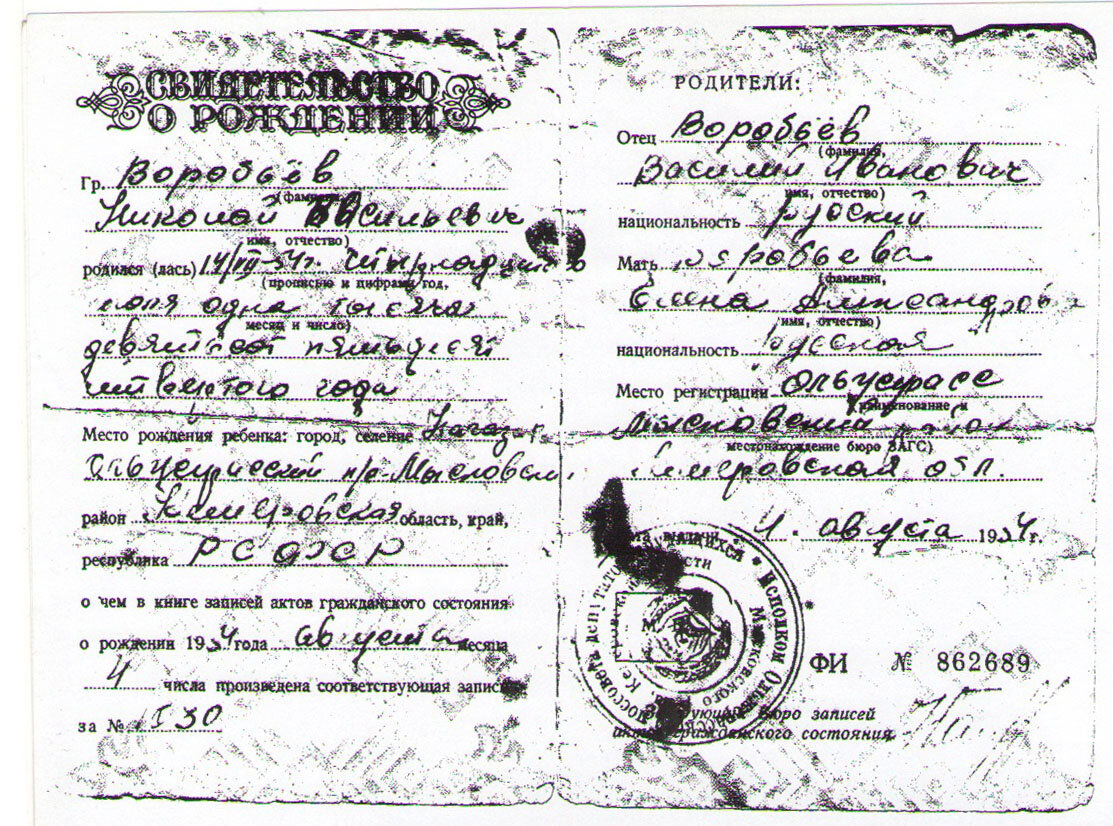 СВИДЕТЕЛЬСТВО
О РОЖДЕНИИ
Гр. Воробьёв
(фамилия,
Николай Васильевич
имя, отчество)
родился (лась) 14/VII-54г.
(прописью и цифрами год,
июля одна тысяча
месяц и число)
девятьсот пятьдесят
четвертого года
Место рождения ребенка: город, селение
район Кемеровская область, край,
республика РСФСР
о чем в книге записей актов гражданского состояния
о рождении 1954 года августа месяца
4 числа произведена соответствующая запись
за № 130
РОДИТЕЛИ:
Отец Воробьёв
(фамилия,
Василий Иванович
имя, отчество)
национальность русский
Мать Воробьева
(фамилия,
Елена Александровна
имя, отчество)
национальность русская
Место регистрации Ольжерасс
(наименование и
район
местонахождение бюро ЗАГС)
Кемеровская обл.
4. августа 1954 г.
М.
ФИ № 862689
бюро записей
гражданского состояния